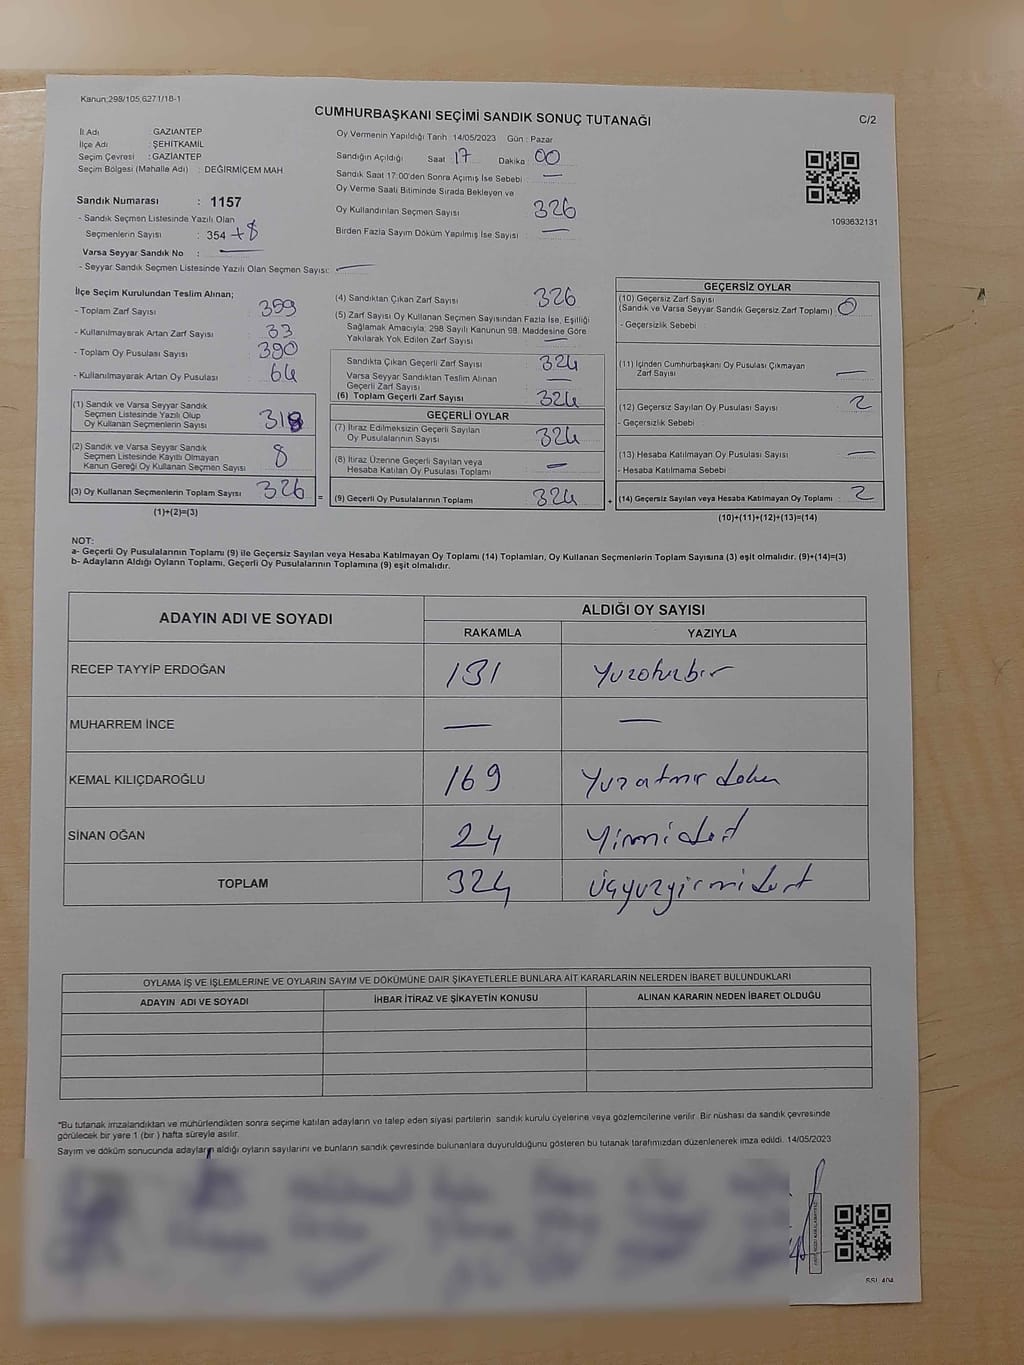 Kanun;298/105,6271/18-1
CUMHURBAŞKANI SEÇİMİ SANDIK SONUÇ TUTANAĞI
C/2
İl Adı : GAZİANTEP
İlçe Adı : ŞEHİTKAMİL
Seçim Çevresi : GAZİANTEP
Seçim Bölgesi (Mahalle Adı) : DEĞİRMİÇEM MAH
Sandık Numarası : 1157
- Sandık Seçmen Listesinde Yazılı Olan
Seçmenlerin Sayısı : 354 +8
Varsa Seyyar Sandık No : —
- Seyyar Sandık Seçmen Listesinde Yazılı Olan Seçmen Sayısı: —
Oy Vermenin Yapıldığı Tarih 14/05/2023 Gün : Pazar
Sandığın Açıldığı Saat 17 Dakika 00
Sandık Saat 17:00'den Sonra Açımış İse Sebebi : —
Oy Verme Saati Bitiminde Sırada Bekleyen ve
Oy Kullandırılan Seçmen Sayısı 326
Birden Fazla Sayım Döküm Yapılmış İse Sayısı : —
1093632131
İlçe Seçim Kurulundan Teslim Alınan;
- Toplam Zarf Sayısı : 359
- Kullanılmayarak Artan Zarf Sayısı : 33
- Toplam Oy Pusulası Sayısı : 390
- Kullanılmayarak Artan Oy Pusulası : 64
(1) Sandık ve Varsa Seyyar Sandık
Seçmen Listesinde Yazılı Olup
Oy Kullanan Seçmenlerin Sayısı : 318
(2) Sandık ve Varsa Seyyar Sandık
Seçmen Listesinde Kayıtlı Olmayan
Kanun Gereği Oy Kullanan Seçmen Sayısı : 8
(3) Oy Kullanan Seçmenlerin Toplam Sayısı : 326
(1)+(2)=(3)
=
(4) Sandıktan Çıkan Zarf Sayısı : 326
(5) Zarf Sayısı Oy Kullanan Seçmen Sayısından Fazla İse, Eşitliği
Sağlamak Amacıyla; 298 Sayılı Kanunun 98. Maddesine Göre
Yakılarak Yok Edilen Zarf Sayısı : —
Sandıkta Çıkan Geçerli Zarf Sayısı : 324
Varsa Seyyar Sandıktan Teslim Alınan
Geçerli Zarf Sayısı : —
(6) Toplam Geçerli Zarf Sayısı : 324
GEÇERLİ OYLAR
(7) İtiraz Edilmeksizin Geçerli Sayılan
Oy Pusulalarının Sayısı : 324
(8) İtiraz Üzerine Geçerli Sayılan veya
Hesaba Katılan Oy Pusulası Toplamı : —
(9) Geçerli Oy Pusulalarının Toplamı : 324
+
GEÇERSİZ OYLAR
(10) Geçersiz Zarf Sayısı
(Sandık ve Varsa Seyyar Sandık Geçersiz Zarf Toplamı) : 0
- Geçersizlik Sebebi :
(11) İçinden Cumhurbaşkanı Oy Pusulası Çıkmayan
Zarf Sayısı : —
(12) Geçersiz Sayılan Oy Pusulası Sayısı : 2
- Geçersizlik Sebebi :
(13) Hesaba Katılmayan Oy Pusulası Sayısı : —
- Hesaba Katılmama Sebebi :
(14) Geçersiz Sayılan veya Hesaba Katılmayan Oy Toplamı : 2
(10)+(11)+(12)+(13)=(14)
NOT:
a- Geçerli Oy Pusulalarının Toplamı (9) ile Geçersiz Sayılan veya Hesaba Katılmayan Oy Toplamı (14) Toplamları, Oy Kullanan Seçmenlerin Toplam Sayısına (3) eşit olmalıdır. (9)+(14)=(3)
b- Adayların Aldığı Oyların Toplamı, Geçerli Oy Pusulalarının Toplamına (9) eşit olmalıdır.
ADAYIN ADI VE SOYADI
ALDIĞI OY SAYISI
RAKAMLA YAZIYLA
RECEP TAYYİP ERDOĞAN 131 Yüzotuzbir
MUHARREM İNCE — —
KEMAL KILIÇDAROĞLU 169 Yüzatmış dokuz
SİNAN OĞAN 24 Yirmi dört
TOPLAM 324 Üçyüzyirmi dört
OYLAMA İŞ VE İŞLEMLERİNE VE OYLARIN SAYIM VE DÖKÜMÜNE DAİR ŞİKAYETLERLE BUNLARA AİT KARARLARIN NELERDEN İBARET BULUNDUKLARI
ADAYIN ADI VE SOYADI İHBAR İTİRAZ VE ŞİKAYETİN KONUSU ALINAN KARARIN NEDEN İBARET OLDUĞU
*Bu tutanak imzalandıktan ve mühürlendikten sonra seçime katılan adayların ve talep eden siyasi partilerin sandık kurulu üyelerine veya gözlemcilerine verilir. Bir nüshası da sandık çevresinde
görülecek bir yere 1 (bir ) hafta süreyle asılır.
Sayım ve döküm sonucunda adayların aldığı oyların sayılarını ve bunların sandık çevresinde bulunanlara duyurulduğunu gösteren bu tutanak tarafımızdan düzenlenerek imza edildi. 14/05/2023